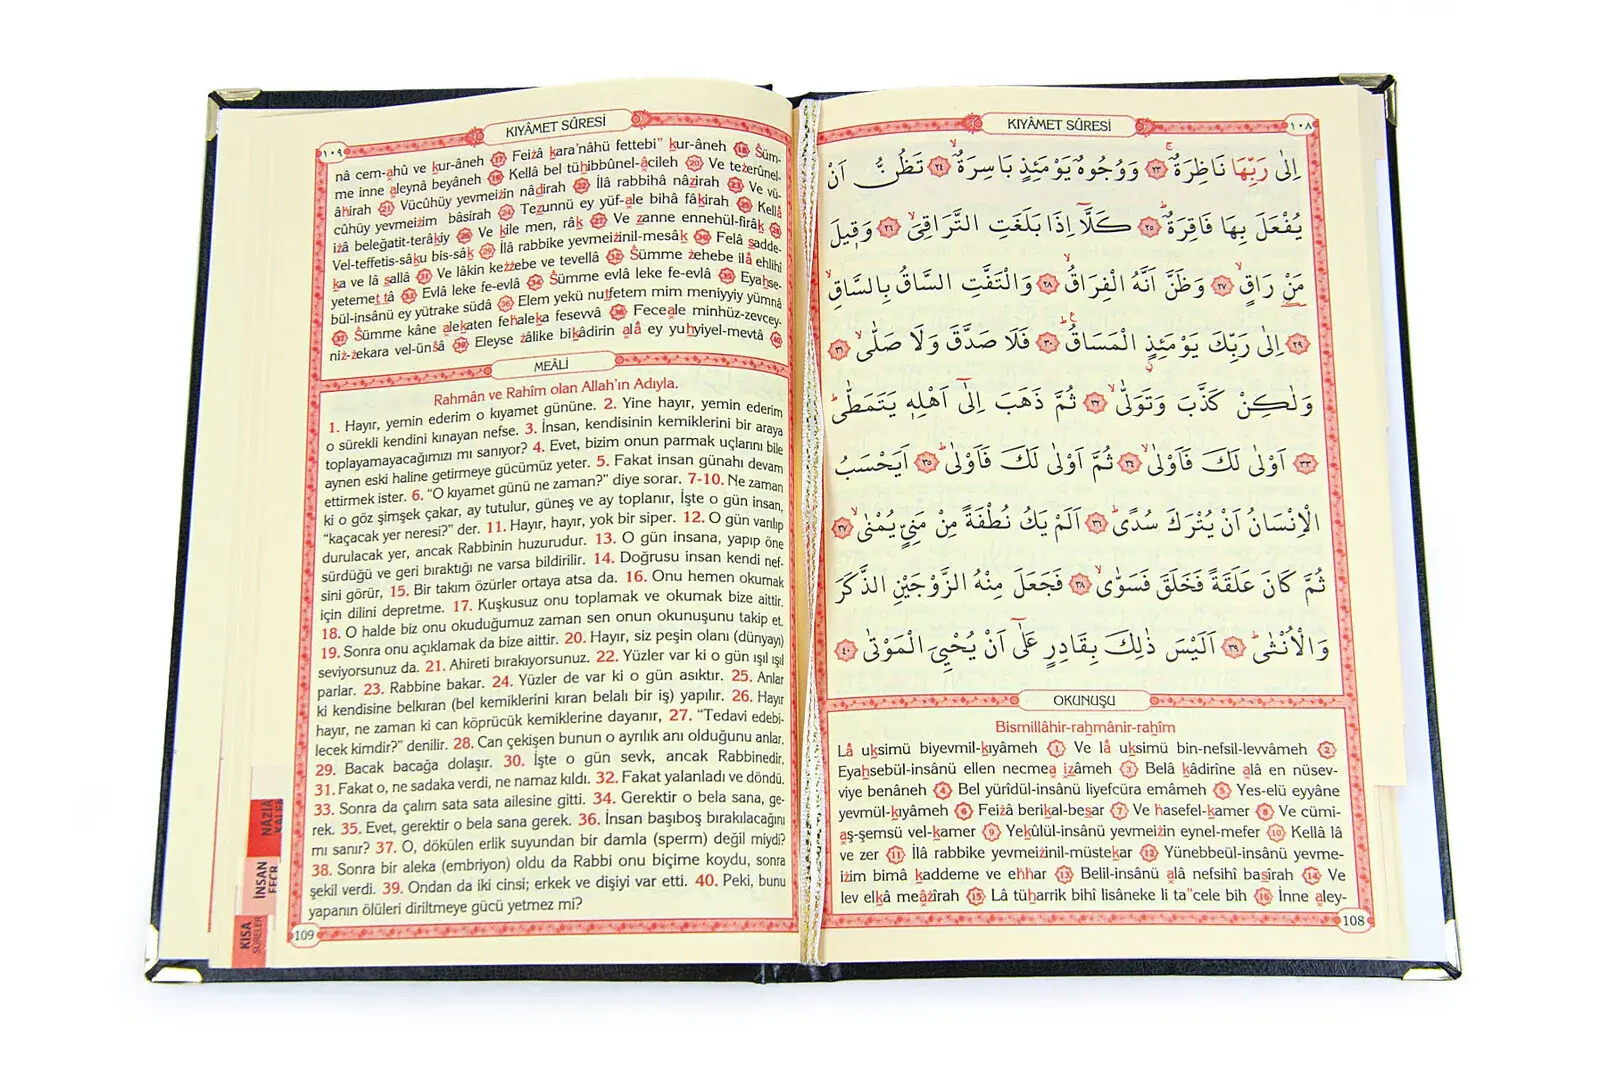 KIYÂMET SÛRESİ
١٠٨
اِلٰى رَبِّهَا نَاظِرَةٌۚ ﴿٢٣﴾ وَوُجُوهٌ يَوْمَئِذٍ بَاسِرَةٌۙ ﴿٢٤﴾ تَظُنُّ اَنْ
يُفْعَلَ بِهَا فَاقِرَةٌۜ ﴿٢٥﴾ كَلَّٓا اِذَا بَلَغَتِ التَّرَاقِيَۙ ﴿٢٦﴾ وَقِيلَ
مَنْ رَاقٍۙ ﴿٢٧﴾ وَظَنَّ اَنَّهُ الْفِرَاقُۙ ﴿٢٨﴾ وَالْتَفَّتِ السَّاقُ بِالسَّاقِۙ
﴿٢٩﴾ اِلٰى رَبِّكَ يَوْمَئِذٍ الْمَسَاقُۜ ﴿٣٠﴾ فَلَا صَدَّقَ وَلَا صَلّٰىۙ ﴿٣١﴾
وَلٰكِنْ كَذَّبَ وَتَوَلّٰىۙ ﴿٣٢﴾ ثُمَّ ذَهَبَ اِلٰٓى اَهْلِهٖ يَتَمَطّٰىۜ
﴿٣٣﴾ اَوْلٰى لَكَ فَاَوْلٰىۙ ﴿٣٤﴾ ثُمَّ اَوْلٰى لَكَ فَاَوْلٰىۜ ﴿٣٥﴾ اَيَحْسَبُ
الْاِنْسَانُ اَنْ يُتْرَكَ سُدًىۜ ﴿٣٦﴾ اَلَمْ يَكُ نُطْفَةً مِنْ مَنِيٍّ يُمْنٰىۙ ﴿٣٧﴾
ثُمَّ كَانَ عَلَقَةً فَخَلَقَ فَسَوّٰىۙ ﴿٣٨﴾ فَجَعَلَ مِنْهُ الزَّوْجَيْنِ الذَّكَرَ
وَالْاُنْثٰىۜ ﴿٣٩﴾ اَلَيْسَ ذٰلِكَ بِقَادِرٍ عَلٰٓى اَنْ يُحْيِيَ الْمَوْتٰى ﴿٤٠﴾
OKUNUŞU
Bismillâhir-rahmânir-rahîm
Lâ uksimü biyevmil-kıyâmeh (1) Ve lâ uksimü bin-nefsil-levvâmeh (2)
Eyahsebül-insânü ellen necmea izâmeh (3) Belâ kâdirîne alâ en nüsev-
viye benâneh (4) Bel yürîdül-insânü liyefcüra emâmeh (5) Yes-elü eyyâne
yevmül-kıyâmeh (6) Feiżâ berikal-besar (7) Ve hasefel-kamer (8) Ve cümi-
aş-şemsü vel-kamer (9) Yekûlül-insânü yevmeiżin eynel-mefer (10) Kellâ lâ
ve zer (11) İlâ rabbike yevmeiżinil-müstekar (12) Yünebbeül-insânü yevme-
iżim bimâ kaddeme ve ehhar (13) Belil-insânü alâ nefsihî basîrah (14) Ve
lev elkâ meâżîrah (15) Lâ tüharrik bihî lisâneke li ta"cele bih (16) İnne aley-
108
KIYÂMET SÛRESİ
١٠٩
nâ cem-ahû ve kur-âneh (17) Feiżâ kara'nâhü fettebi" kur-âneh (18) Śüm-
me inne aleynâ beyâneh (19) Kellâ bel tühibbûnel-âcileh (20) Ve teżerûnel-
âhirah (21) Vücûhüy yevmeiżin nâdirah (22) İlâ rabbihâ nâzirah (23) Ve vü-
cûhüy yevmeiżim bâsirah (24) Tezunnü ey yüf-ale bihâ fâkirah (25) Kellâ
iżâ beleğatit-terâkiy (26) Ve kîle men, râk (27) Ve zanne ennehül-firâk (28)
Vel-teffetis-sâku bis-sâk (29) İlâ rabbike yevmeiżinil-mesâk (30) Felâ sadde-
ka ve lâ sallâ (31) Ve lâkin keżżebe ve tevellâ (32) Śümme żehebe ilâ ehlihî
yetemettâ (33) Evlâ leke fe-evlâ (34) Śümme evlâ leke fe-evlâ (35) Eyahse-
bül-insânü ey yütrake südâ (36) Elem yekü nutfetem mim meniyyiy yümnâ
(37) Śümme kâne alekaten fehaleka fesevvâ (38) Feceale minhüz-zevcey-
niż-żekara vel-ünśâ (39) Eleyse żâlike bikâdirin alâ ey yuhyiyel-mevtâ (40)
MEÂLİ
Rahmân ve Rahîm olan Allah'ın Adıyla.
1. Hayır, yemin ederim o kıyamet gününe. 2. Yine hayır, yemin ederim
o sürekli kendini kınayan nefse. 3. İnsan, kendisinin kemiklerini bir araya
toplayamayacağımızı mı sanıyor? 4. Evet, bizim onun parmak uçlarını bile
aynen eski haline getirmeye gücümüz yeter. 5. Fakat insan günahı devam
ettirmek ister. 6. "O kıyamet günü ne zaman?" diye sorar. 7-10. Ne zaman
ki o göz şimşek çakar, ay tutulur, güneş ve ay toplanır, İşte o gün insan,
"kaçacak yer neresi?" der. 11. Hayır, hayır, yok bir siper. 12. O gün varılıp
durulacak yer, ancak Rabbinin huzurudur. 13. O gün insana, yapıp öne
sürdüğü ve geri bıraktığı ne varsa bildirilir. 14. Doğrusu insan kendi nef-
sini görür, 15. Bir takım özürler ortaya atsa da. 16. Onu hemen okumak
için dilini depretme. 17. Kuşkusuz onu toplamak ve okumak bize aittir.
18. O halde biz onu okuduğumuz zaman sen onun okunuşunu takip et.
19. Sonra onu açıklamak da bize aittir. 20. Hayır, siz peşin olanı (dünyayı)
seviyorsunuz da. 21. Ahireti bırakıyorsunuz. 22. Yüzler var ki o gün ışıl ışıl
parlar. 23. Rabbine bakar. 24. Yüzler de var ki o gün asıktır. 25. Anlar
ki kendisine belkıran (bel kemiklerini kıran belalı bir iş) yapılır. 26. Hayır
hayır, ne zaman ki can köprücük kemiklerine dayanır, 27. "Tedavi edebi-
lecek kimdir?" denilir. 28. Can çekişen bunun o ayrılık anı olduğunu anlar.
29. Bacak bacağa dolaşır. 30. İşte o gün sevk, ancak Rabbinedir.
31. Fakat o, ne sadaka verdi, ne namaz kıldı. 32. Fakat yalanladı ve döndü.
33. Sonra da çalım sata sata ailesine gitti. 34. Gerektir o bela sana, ge-
rek. 35. Evet, gerektir o bela sana gerek. 36. İnsan başıboş bırakılacağını
mı sanır? 37. O, dökülen erlik suyundan bir damla (sperm) değil miydi?
38. Sonra bir aleka (embriyon) oldu da Rabbi onu biçime koydu, sonra
şekil verdi. 39. Ondan da iki cinsi; erkek ve dişiyi var etti. 40. Peki, bunu
yapanın ölüleri diriltmeye gücü yetmez mi?
109
İNSAN
FECR
KISA
SURELER